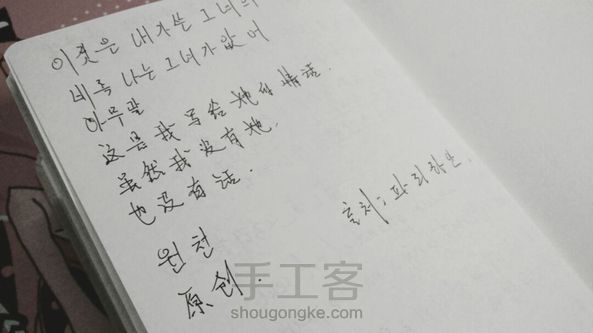 이것은 내가 쓴 그녀의
비록 나는 그녀가 없어
아무말
这是我写给她的情话.
虽然我没有她.
也没有话.
원천
原创.
출처: 파리창문.
手工客
shougongke.com